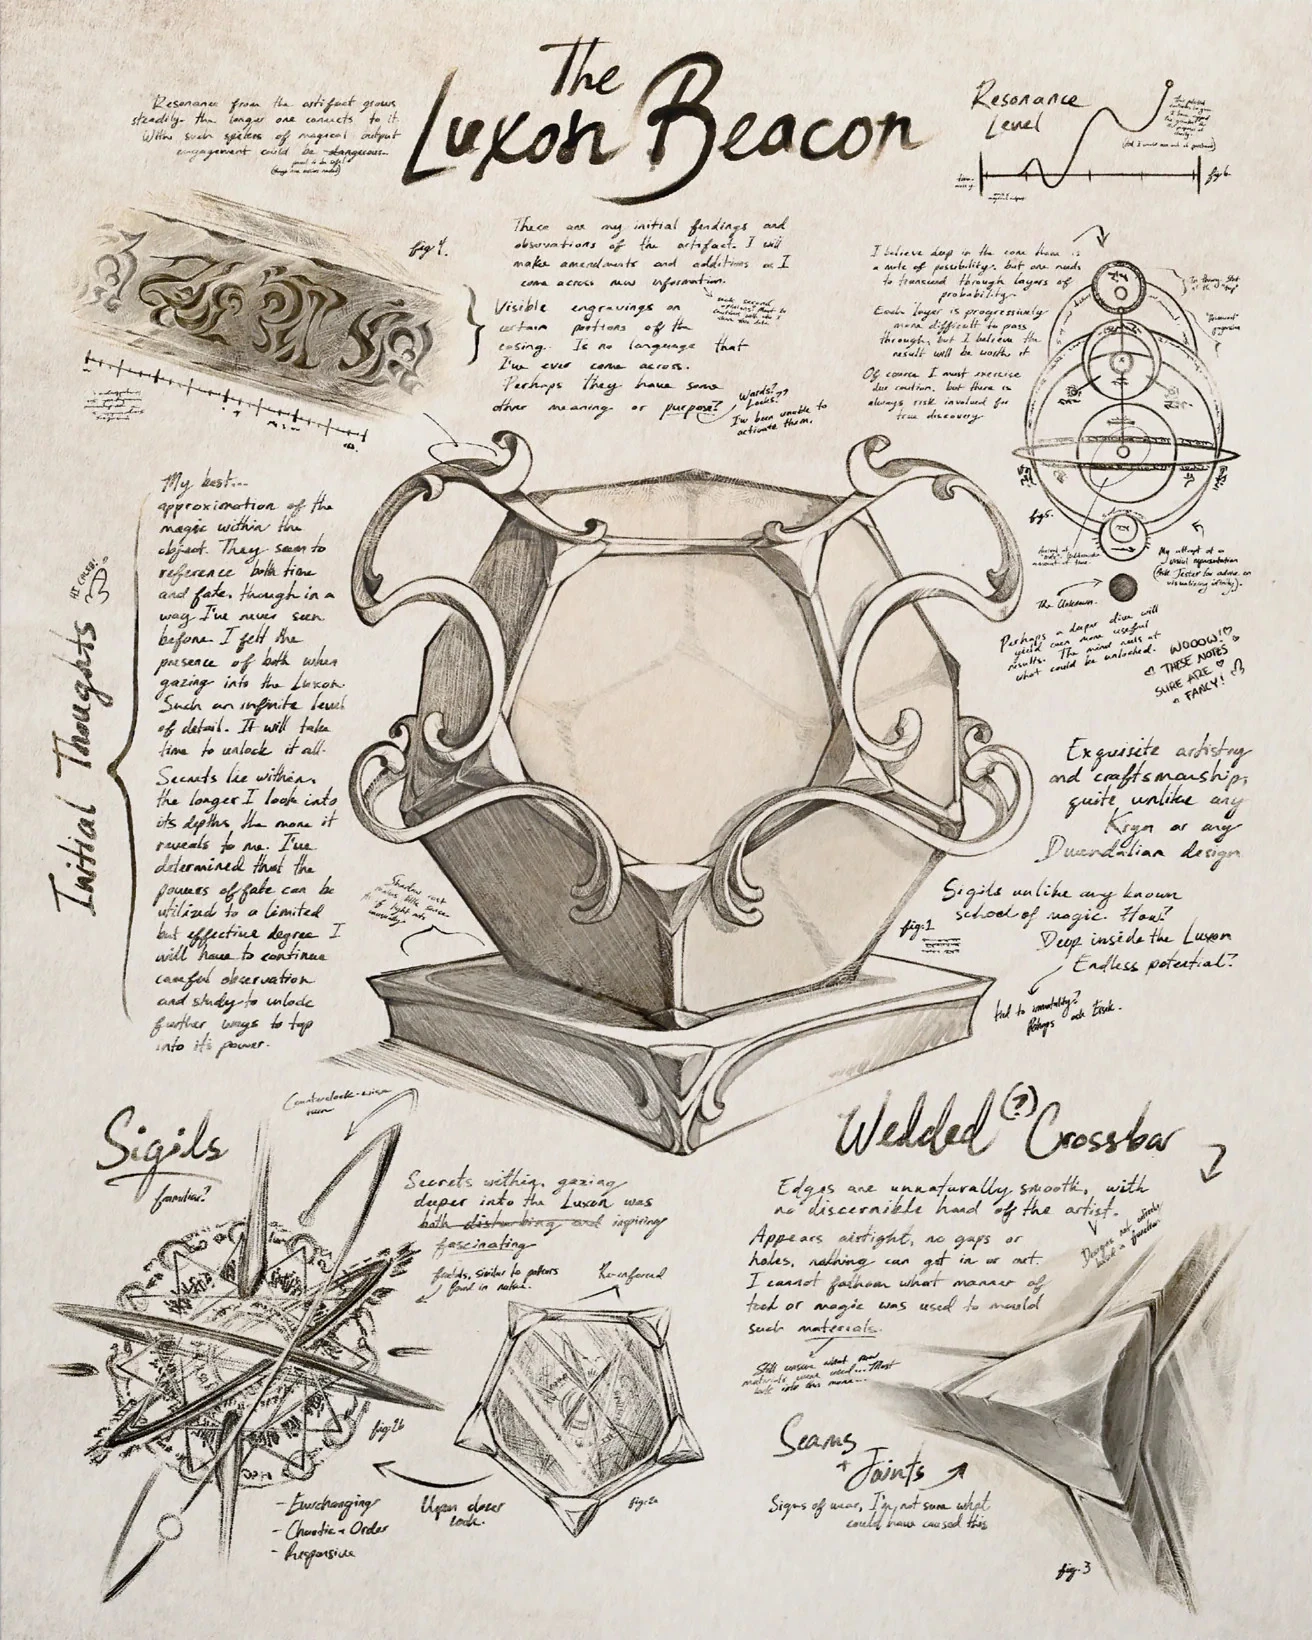 The
Luxon Beacon
Resonance from the artifact grows
steadily the longer one connects to it.
With such spikes of magical output
engagement could be dangerous
Resonance
Level
fig 6
fig 4.
These are my initial findings and
observations of the artifact. I will
make amendments and additions as I
come across new information.
Visible engravings on
certain portions of the
casing. Is no language that
I've ever come across.
Perhaps they have some
other meaning or purpose?
Words?
Locks?
I've been unable to
activate them.
I believe deep in the core there is
a mote of possibility, but one needs
to transcend through layers of
probability.
Each layer is progressively
more difficult to pass
through, but I believe the
result will be worth it
Of course I must exercise
due caution, but there is
always risk involved for
true discovery
fig 5.
My attempt at a
visual representation
(Ask Jester for advice on
visualizing divinity).
The Unknown.
Perhaps a deeper dive will
yield even more useful
results. The mind reels at
what could be unlocked.
WOOOW!
THESE NOTES
SURE ARE
FANCY!
Initial Thoughts
HI CALEB!
My best...
approximation of the
magic within the
object. They seem to
reference both time
and fate, though in a
way I've never seen
before. I felt the
presence of both when
gazing into the Luxon
Such an infinite level
of detail. It will take
time to unlock it all.
Secrets lie within,
the longer I look into
its depths the more it
reveals to me. I've
determined that the
powers of fate can be
utilized to a limited
but effective degree I
will have to continue
careful observation
and study to unlock
further ways to tap
into it's power.
Exquisite artistry
and craftsmanship,
quite unlike any
Kryn or any
Dwendalian design
Sigils unlike any known
school of magic. How?
Deep inside the Luxon
Endless potential?
tied to immortality?
Perhaps ask Essik.
fig.1
Shadow cast
Counterclock-wise
turn
Sigils
familiar?
Secrets within, gazing
deeper into the Luxon was
both disturbing and inspiring
fascinating
fractals, similar to patterns
found in nature.
Re-enforced
fig 2b
fig 2a
Upon closer
look.
- Everchanging
- Chaotic + Order
- Responsive
Wedded (?) Crossbar
Edges are unnaturally smooth, with
no discernible hand of the artist.
Appears airtight, no gaps or
holes, nothing can get in or out.
I cannot fathom what manner of
tool or magic was used to mould
such materials.
Seams
+ Joints
Signs of wear, I'm not sure what
could have caused this
fig. 3